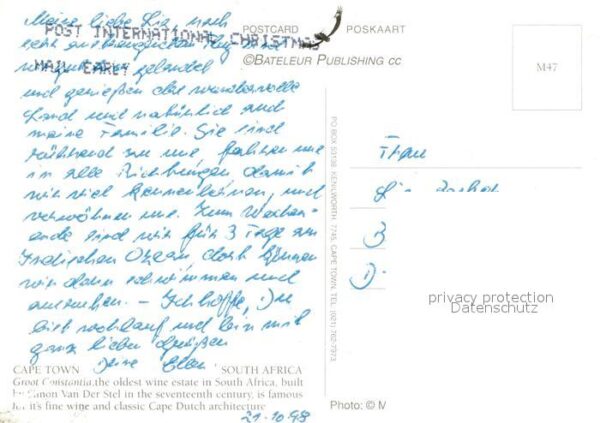 POSTCARD POSKAART
POST INTERNATIONAL CHRISTMAS
MAIL EARLY
©BATELEUR PUBLISHING CC
M47
Meine liebe Lia, nach
sehr Flug sind
wir gut gelandet
und genießen das wundervolle
Land und natürlich auch
meine Familie. Sie sind
rührend zu uns, fahren uns
in alle Richtungen, damit
wir viel kennenlernen, und
verwöhnen uns. Zum Wochen-
ende sind wir für 3 Tage am
Indischen Ozean, dort können
wir dann schwimmen und
ausruhen. – Ich hoffe, Du
bist wohlauf und bin mit
ganz lieben Grüßen
Deine Ellen
Frau
Lia
B
D-
PO BOX 53138 KENILWORTH 7745, CAPE TOWN, TEL (021) 762-7973
privacy protection
Datenschutz
CAPE TOWN SOUTH AFRICA
Groot Constantia, the oldest wine estate in South Africa, built
by Simon Van Der Stel in the seventeenth century, is famous
for it's fine wine and classic Cape Dutch architecture
Photo: © M
21.10.98